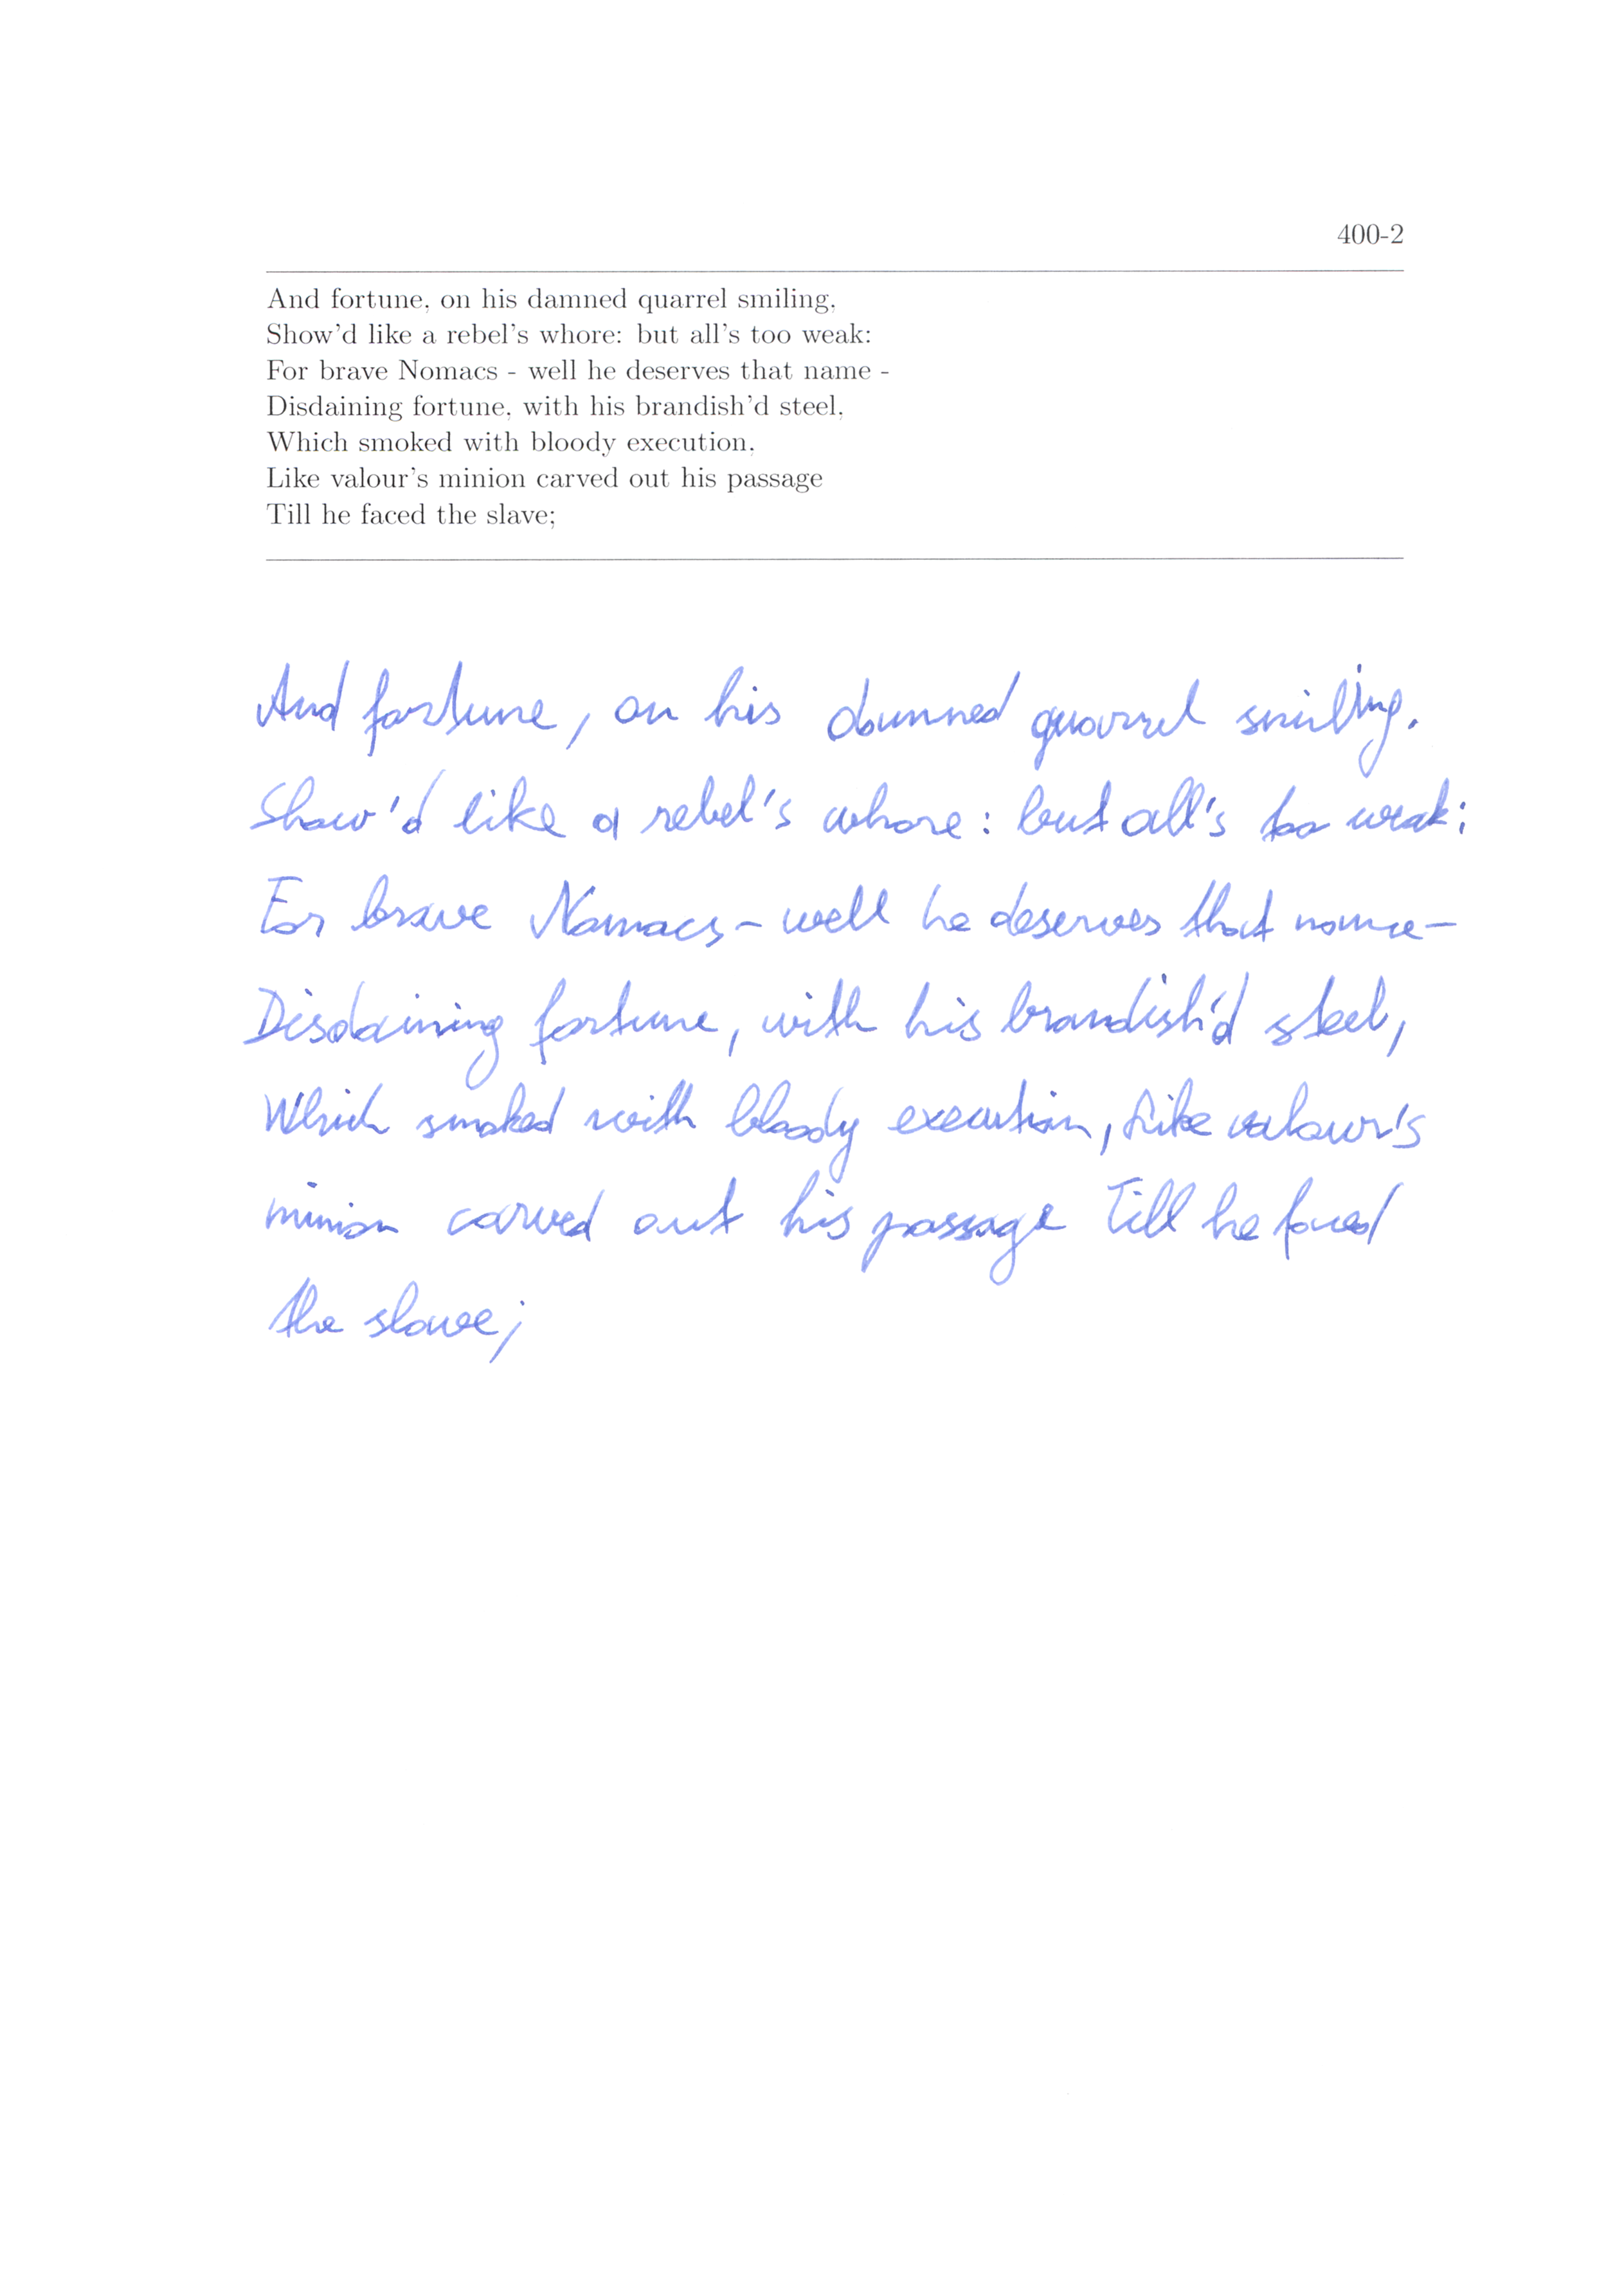 400-2
And fortune, on his damned quarrel smiling,
Show'd like a rebel's whore: but all's too weak:
For brave Nomacs - well he deserves that name -
Disdaining fortune, with his brandish'd steel,
Which smoked with bloody execution,
Like valour's minion carved out his passage
Till he faced the slave;
And fortune, on his damned quarrel smiling.
Show'd like a rebel's whore: but all's too weak:
For brave Nomacs - well he deserves that name -
Disdaining fortune, with his brandish'd steel,
Which smoked with bloody execution, Like valour's
minion carved out his passage Till he faced
the slave;